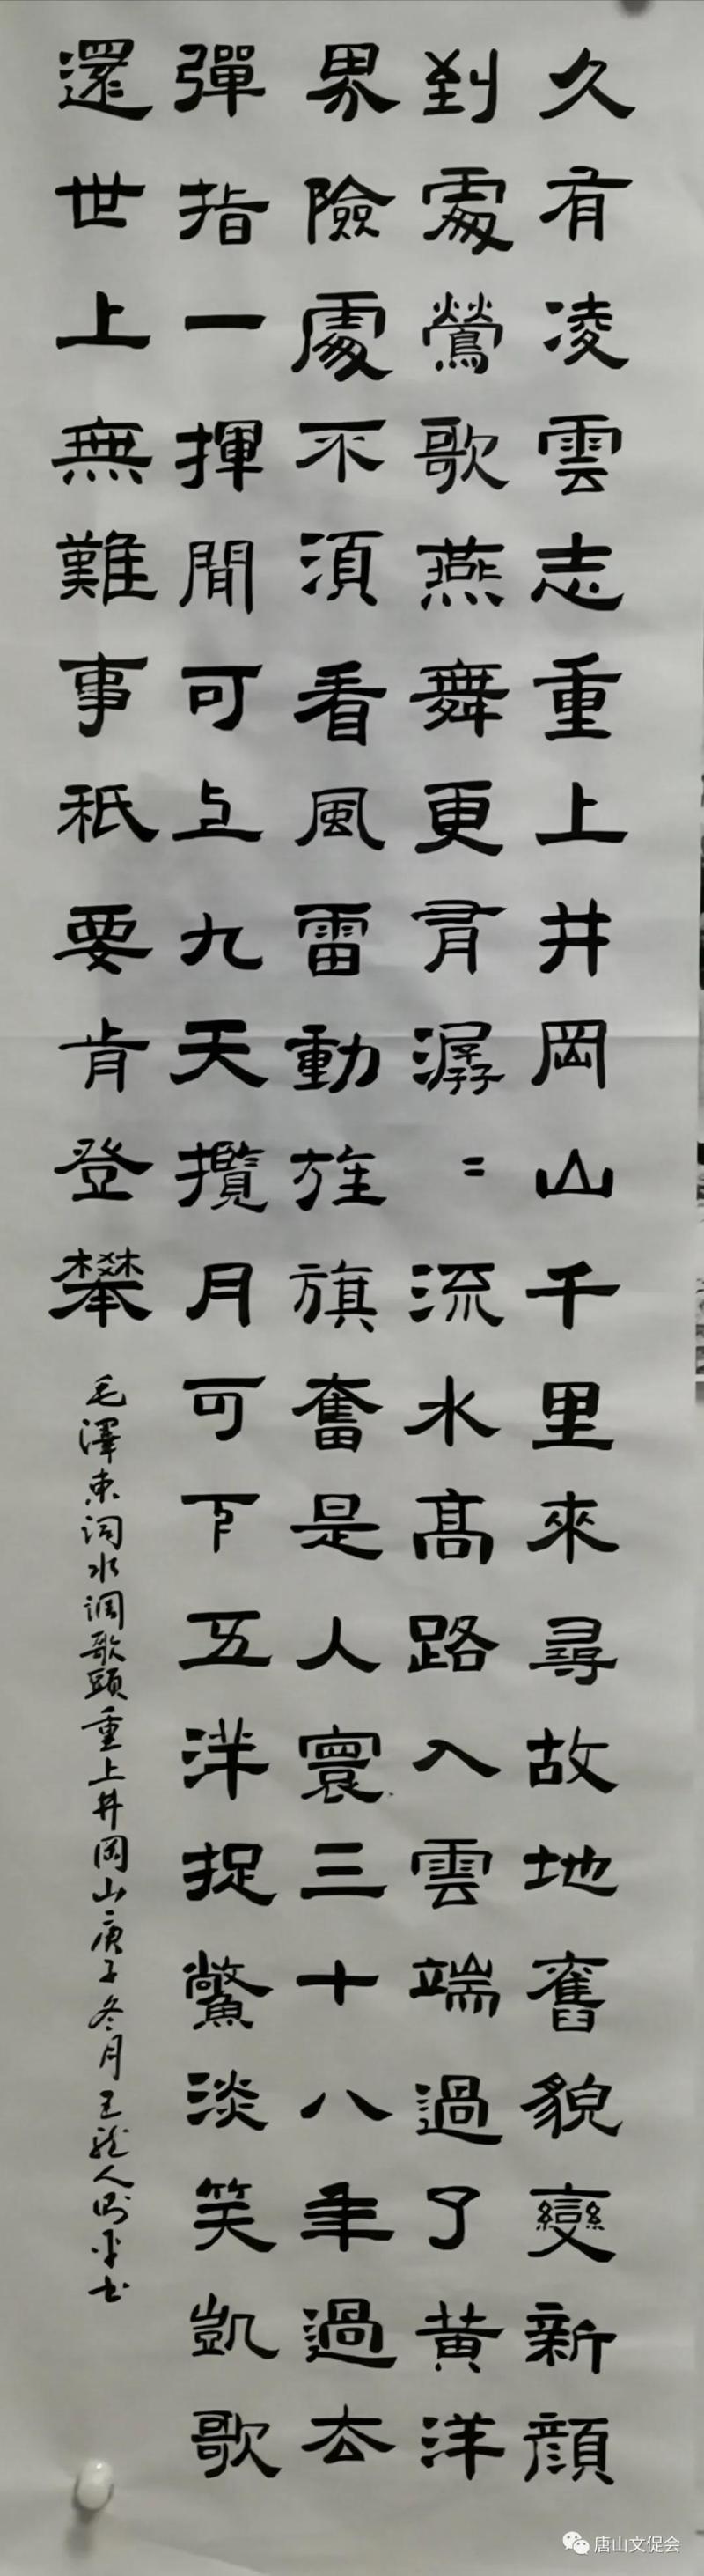 久有凌雲志重上井岡山千里來尋故地舊貌變新顔
到處鶯歌燕舞更有潺〻流水高路入雲端過了黄洋
界險處不須看風雷動旌旗奮是人寰三十八年過去
彈指一揮間可上九天攬月可下五洋捉鱉淡笑凱歌
還世上無難事祇要肯登攀
毛澤東词水调歌頭重上井岡山庚子冬月王 人 書
唐山文促会